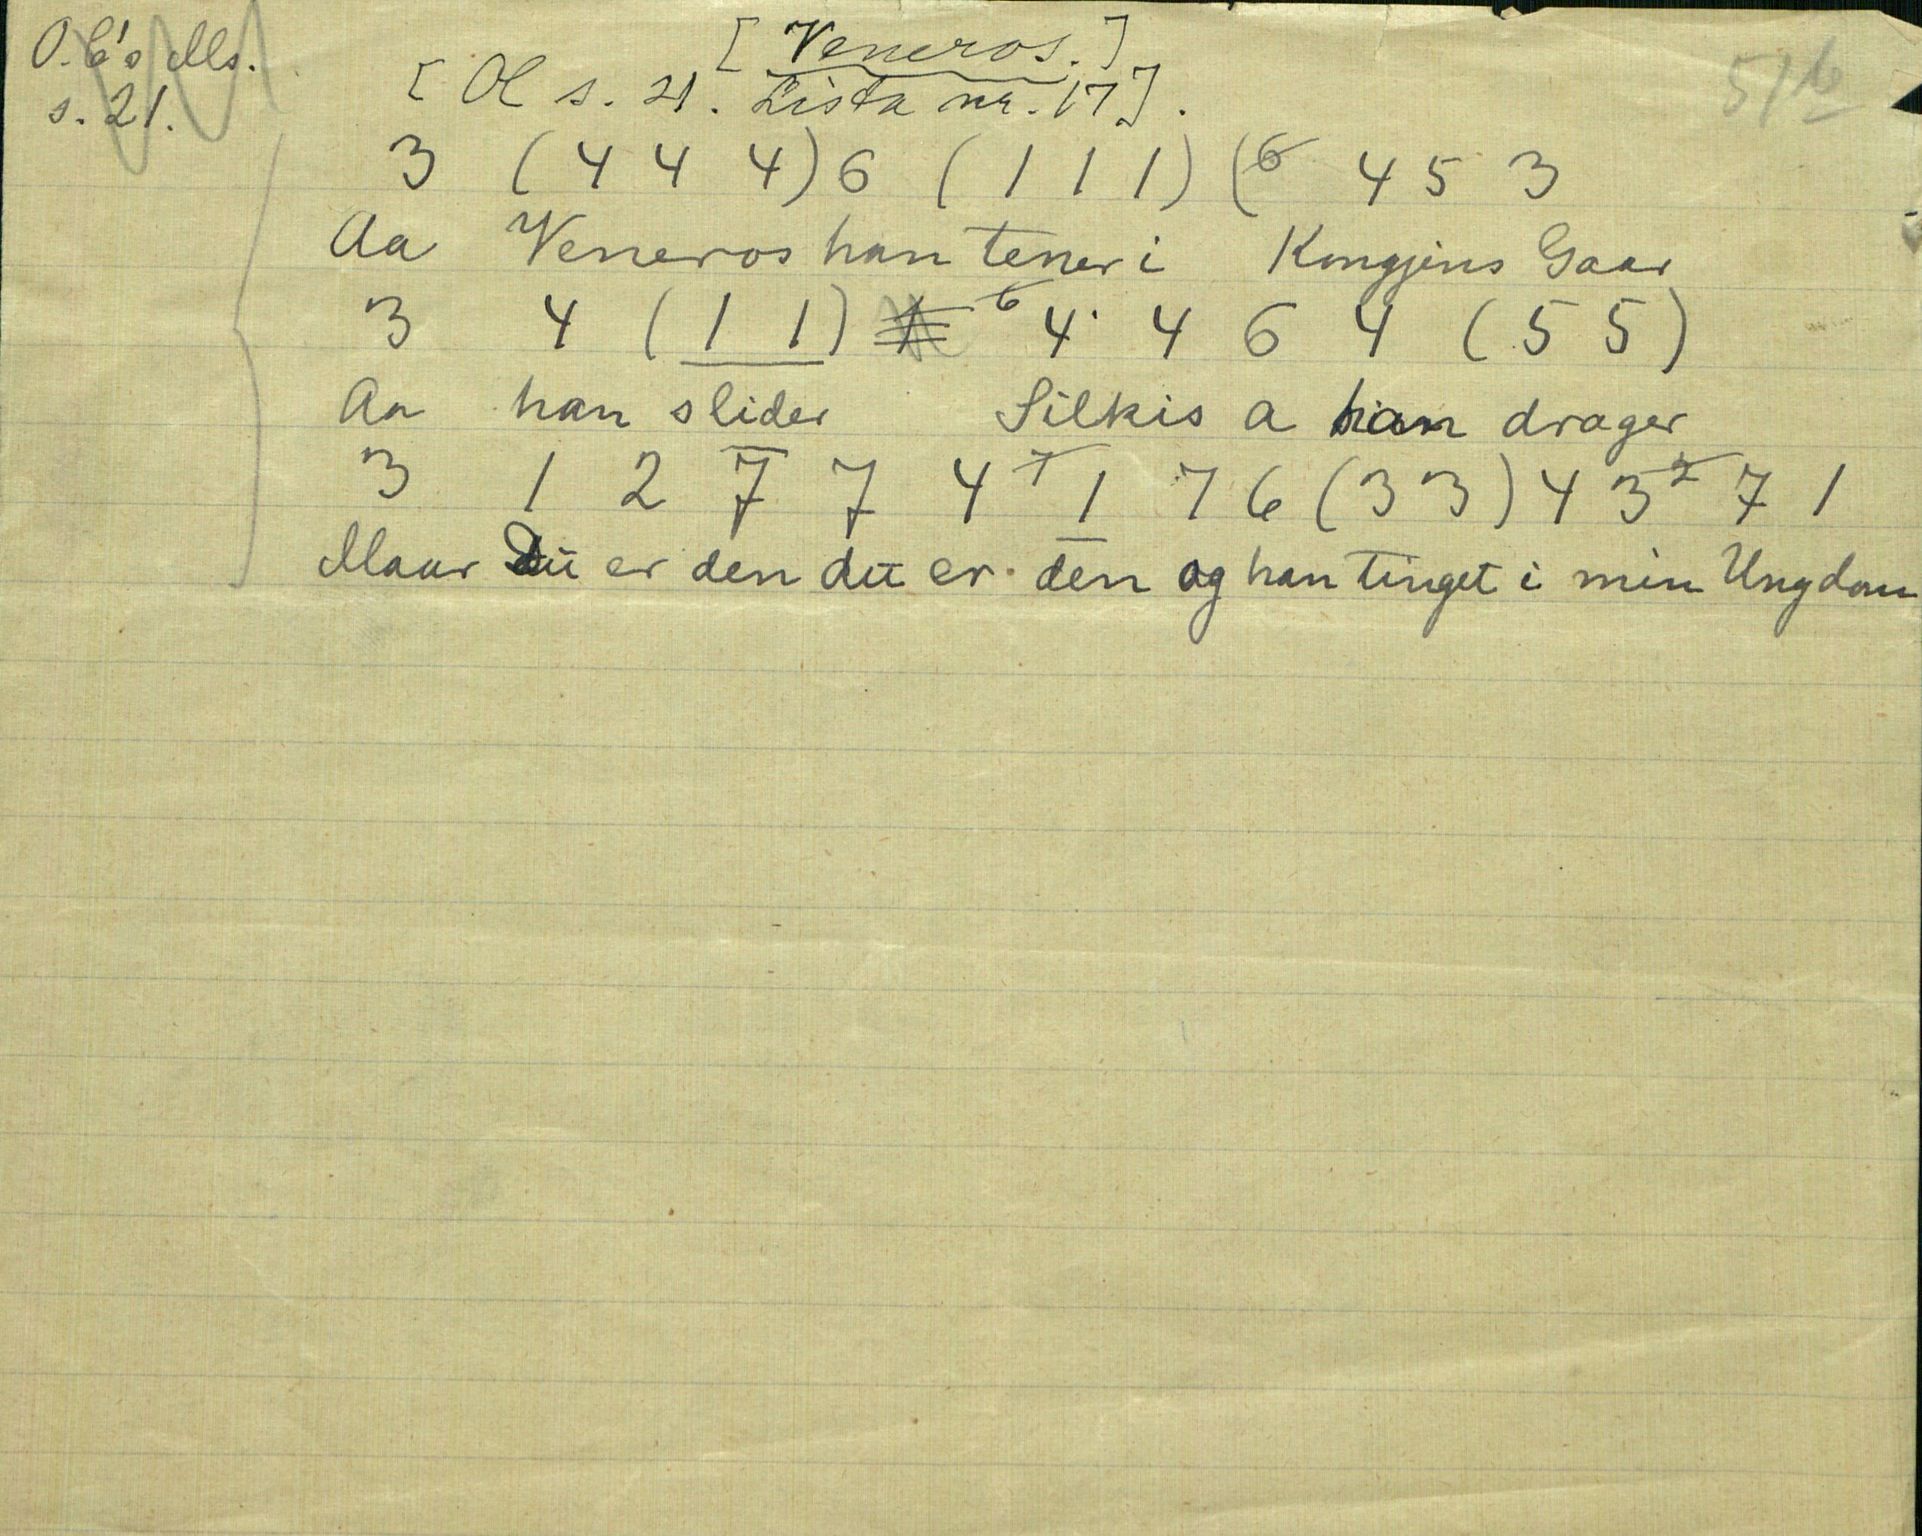 O.C's Ms.
s. 21.
[Veneros.]
[Ol s. 21. Lista nr. 17].
51b
3 (4 4 4) 6 (1 1 1) (6 4 5 3
Aa Veneros han tener i Kongjens Gaar
3 4 (1 1) 6 4· 4 6 4 (5 5)
Aa han slider Silkis a han drager
3 1 2 7 7 4 7 1 7 6 (3 3) 4 3 2 7 1
Maar du er den du er den og han tinget i min Ungdom